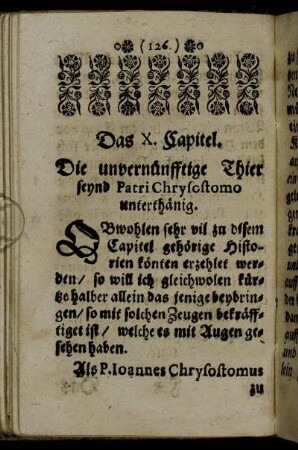 (126.)
Das X. Capitel.
Die unvernünfftige Thier
seynd Patri Chrysostomo
unterthänig.
OBwohlen sehr vil zu disem
Capitel gehörige Histo-
rien könten erzehlet wer-
den / so will ich gleichwolen kür-
tze halber allein das jenige beybrin-
gen / so mit solchen Zeugen bekräff-
tiget ist / welche es mit Augen ge-
sehen haben.
Als P. Ioannes Chrysostomus
zu